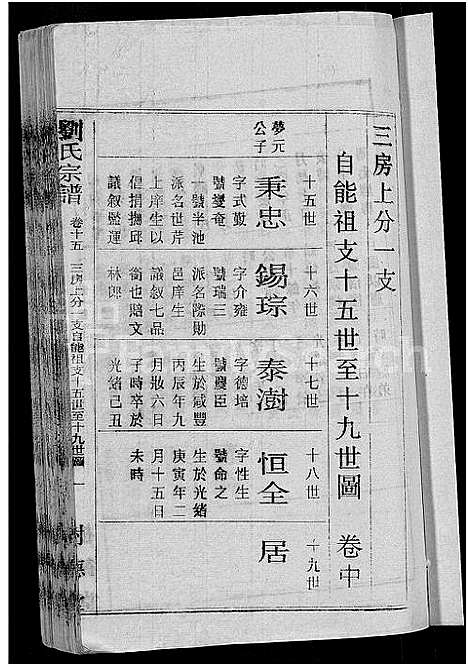 三房上分一支
自能祖支十五世至十九世圖 卷中
十五世
十六世
十七世
十八世
十九世
夢元公子
秉忠
字式
號夔奄
一號半池
派名世芹
上庠生以
倡捐撫邱
議叙鹽運
錫琮
字介雍
號瑞三
派名際勛
邑庠生
議叙七品
銜也贈文
林郎
泰澍
字德培
號農臣
生於咸豐
丙辰年九
月廿六日
子時卒於
光緒己丑
恒全
字性生
號命之
生於光緒
庚寅年二
月十五日
未時
居
劉氏宗譜 卷十五 三房上分一支自能祖支十五世至十九世圖 一